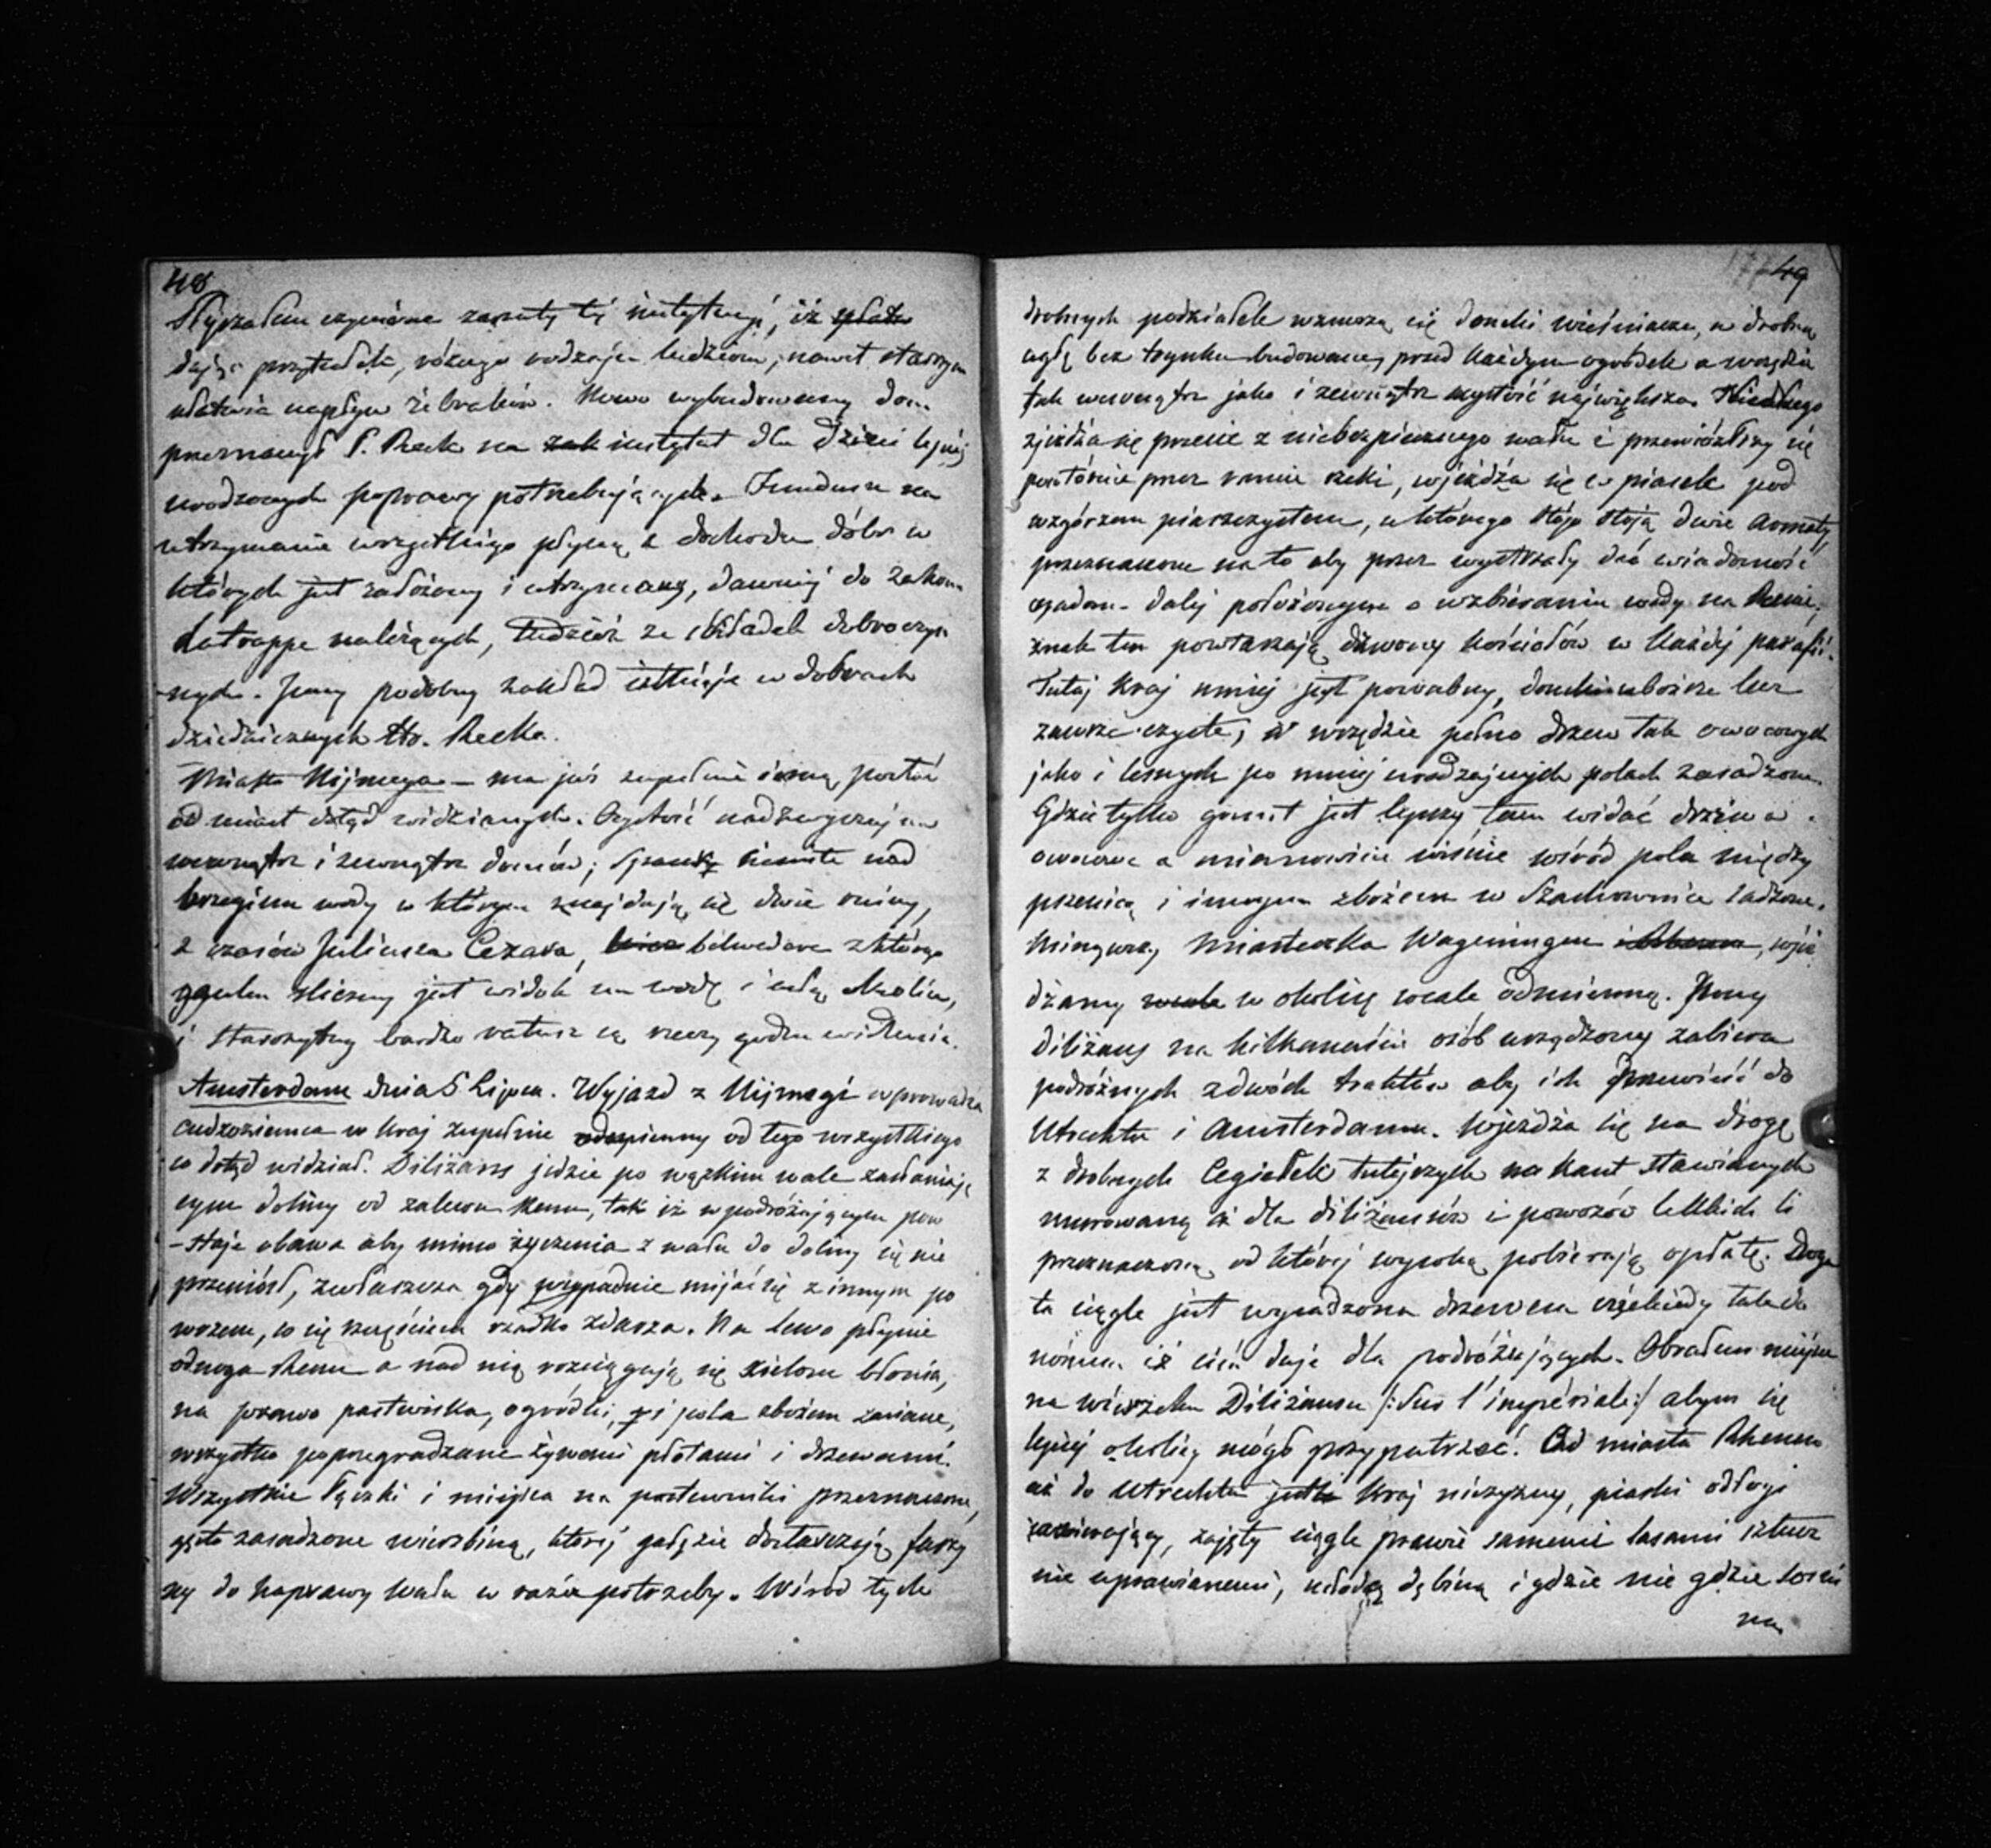 48
Słyszałem czynione zarzuty téj instytucyi, iż
dając przytułek, różnego rodzaju ludziom, nawet starszym
ułatwia napływ żebraków. Nowo wybudowany dom
przeznaczył P. Reck na zak instytut dla dzieci lepiéj
urodzonych poprawy potrzebujących. Fundusze na
utrzymanie wszystkiego płyną z dochodu dóbr w
których jest założony i utrzymany, dawniéj do Zakonu
Latrappe należących, tudzież ze składek dobroczyn
nych. Inny podobny zakład istnieje w dobrach
dziedzicznych Hr. Recke.
Miasto Nijmega – ma już zupełnie inną postać
od miast dotąd widzianych. Czystość nadzwyczajna
wewnątrz i zewnątrz domów; nad
brzegiem wody w którym znajdują się dwie ruiny,
z czasów Juliusza Cezara, belwedere z którego
śliczny jest widok na wodę i całą okolicę,
i starożytny bardzo ratusz są rzeczy godne widzenia.
Amsterdam dnia 5 Lipca. Wyjazd z Nijmegi wprowadza
cudzoziemca w kraj zupełnie odmienny od tego wszystkiego
co dotąd widział. Diliżans jedzie po wązkim wale zasłaniają
cym doliny od zalewu Renu, tak iż w podróżującym pow
-staje obawa aby mimo życzenia z wału do doliny się nie
przeniósł, zwłaszcza gdy przypadnie mijać się z innym po
wozem, co się szczęściem rzadko zdarza. Na lewo płynie
odnoga Renu a nad nią rozciągają się zielone błonia,
na prawo pastwiska, ogródki, i pola zbożem zasiane,
wszystko poprzegradzane żywemi płotami i drzewami.
Wszystkie łączki i miejsca na pastwiski przeznaczone,
gęsto zasadzone wierzbiną, któréj gałęzie dostarczają faszy
ny do naprawy wału w razie potrzeby. Wśród tych
49
drobnych podziałek wznoszą się domki wieśniacze, z drobnéj
cegły bez tynku budowane, przed każdym ogródek a wszędzie
tak wewnątrz jako i zewnątrz czystość największa. Niedługo
zjeżdża się przecie z niebezpiecznego wału i przewiózłszy się
powtórnie przez ramie rzeki, wjeżdża się w piasek pod
wzgórzem piaszczystem, u którego stoją dwie armaty,
przeznaczone na to aby przez wystrzały dać wiadomość
osadom daléj położonym o wzbieraniu wody na Renie,
znak ten powtarzają dzwony kościołów w każdéj parafii.
Tutaj kraj mniéj jest powabny, domki uboższe lecz
zawsze czyste, i wszędzie pełno drzew tak owocowych
jako i leśnych po mniéj urodzajnych polach zasadzone.
Gdzie tylko grunt jest lepszy tam widać drzewa
owocowe a mianowicie wiśnie wśród pola między
pszenicą i innym zbożem w szachownice sadzone.
Minąwszy miasteczka Wageningen i Rhenen, wjeż
dżamy wcale w okolicę wcale odmienną. Inny
Diliżans na kilkanaście osób urządzony zabiera
podróżnych z dwóch traktów aby ich przewieść do
Utrechtu i Amsterdamu. Wjeżdża się na drogę
z drobnych cegiełek tutejszych na kant stawianych
murowaną aż dla diliżansów i powozów lekkich li
przeznaczoną od któréj wysoką pobierają opłatę. Droga
ta ciągle jest wysadzona drzewem częściowo
iż cień daje dla podróżujących. Obrałem miejsce
na wierzchu Diliżansu /: Sur l'impériale :/ abym się
lepiéj okolicy mógł przypatrzeć. Od miasta Rhenen
aż do Utrechtu jest kraj nieżyzny, piaski odłogi
zawierający, zajęty ciągle prawie samemi lasami sztucz
nie uprawianemi, młodą dębiną i gdzie nie gdzie sośni
na